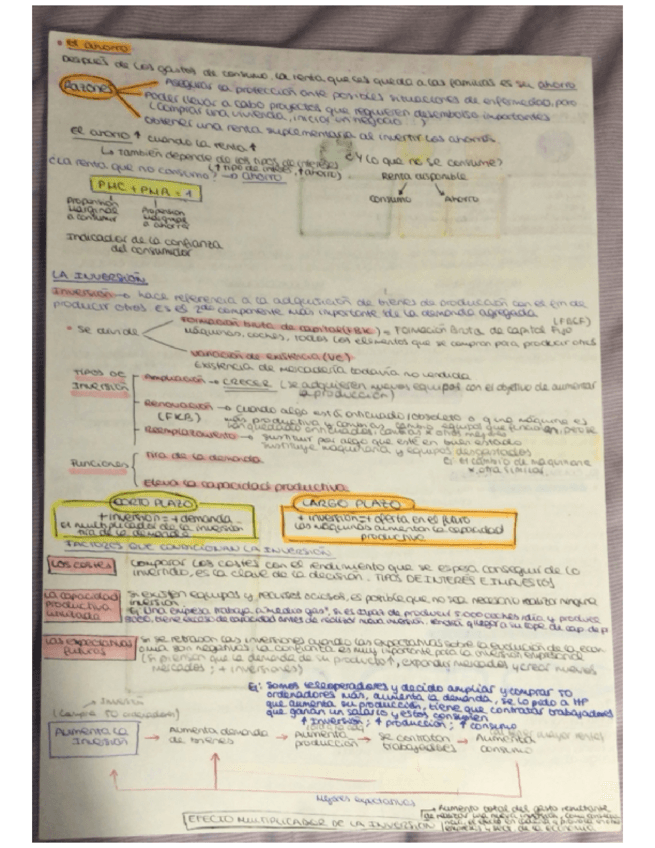 * El ahorro
Después de los gastos de consumo, la renta que les queda a las familias es su ahorro
Razones
Asegurar la protección ante posibles situaciones de enfermedad, paro
Poder llevar a cabo proyectos que requieren desembolso importantes
(comprar una vivienda, iniciar un negocio...)
Obtener una renta suplementaria al invertir los ahorros.
El ahorro ↑ cuando la renta ↑
↳ También depende de los tipos de interés
(↑ tipo de interés, ↑ ahorro)
¿Y lo que no se consume?
¿La renta que no consumo? → ahorro
Renta disponible
PMC + PMA = 1
Consumo Ahorro
Propensión marginal a consumir
Propensión marginal a ahorrar
Indicador de la confianza
del consumidor
LA INVERSIÓN
Inversión → hace referencia a la adquisición de bienes de producción con el fin de
producir otros. Es el 2do componente más importante de la demanda agregada
* Se divide
Formación bruta de capital (FBK) = Formación Bruta de Capital Fijo (FBCF)
Máquinas, coches, todos los elementos que se compran para producir otros
Variación de existencia (VE)
Existencia de mercadería todavía no vendida
TIPOS DE INVERSIÓN
Ampliación → CRECER (se adquieren nuevos equipos con el objetivo de aumentar
la producción)
Renovación → Cuando algo está anticuado (obsoleto) o una máquina es
más productiva y
Reemplazamiento → sustituir por algo que esté en buen estado
Sustituye maquinaria y equipos desgastados
Ej: el cambio de maquinaria
x otra similar
Funciones
Tira de la demanda
Eleva la capacidad productiva
CORTO PLAZO
+ inversión = + demanda
El multiplicador de la inversión
tira de la demanda
LARGO PLAZO
+ inversión = + oferta en el futuro
Las máquinas aumentan la capacidad
productiva
FACTORES QUE CONDICIONAN LA INVERSIÓN
Los costes
Comparar los costes con el rendimiento que se espera conseguir de lo
invertido, es la clave de la decisión. TIPOS DE INTERÉS E IMPUESTOS
La capacidad productiva utilizada
Si existen equipos y recursos ociosos, es posible que no sea necesario realizar ninguna
inversión
Ej: Una empresa trabaja a "medio gas", si es capaz de producir 5000 coches/día y produce
tiene exceso de capacidad antes de realizar nueva inversión
Las expectativas futuras
Si se retrasan las inversiones cuando las expectativas sobre la evolución de la econ
omía son negativas. La confianza es muy importante para la inversión empresarial
(Si piensan que la demanda de su producto ↑, expandir mercados y crear nuevos
mercados; + inversiones)
Ej: Somos teleoperadores y decido ampliar y comprar 50
ordenadores más, aumenta la demanda, se lo pedo a HP
que aumenta su producción, tiene que contratar trabajadores
que ganan un salario y estos consumen
↑ Inversión; ↑ producción; ↑ consumo
Inversión
(Compra 50 ordenadores)
Aumenta la Inversión → Aumenta demanda de bienes → Aumenta producción → Se contratan trabajadores → Aumenta consumo
Mejores expectativas
EFECTO MULTIPLICADOR DE LA INVERSIÓN
Aumento total del gasto resultante
de realizar una nueva inversión